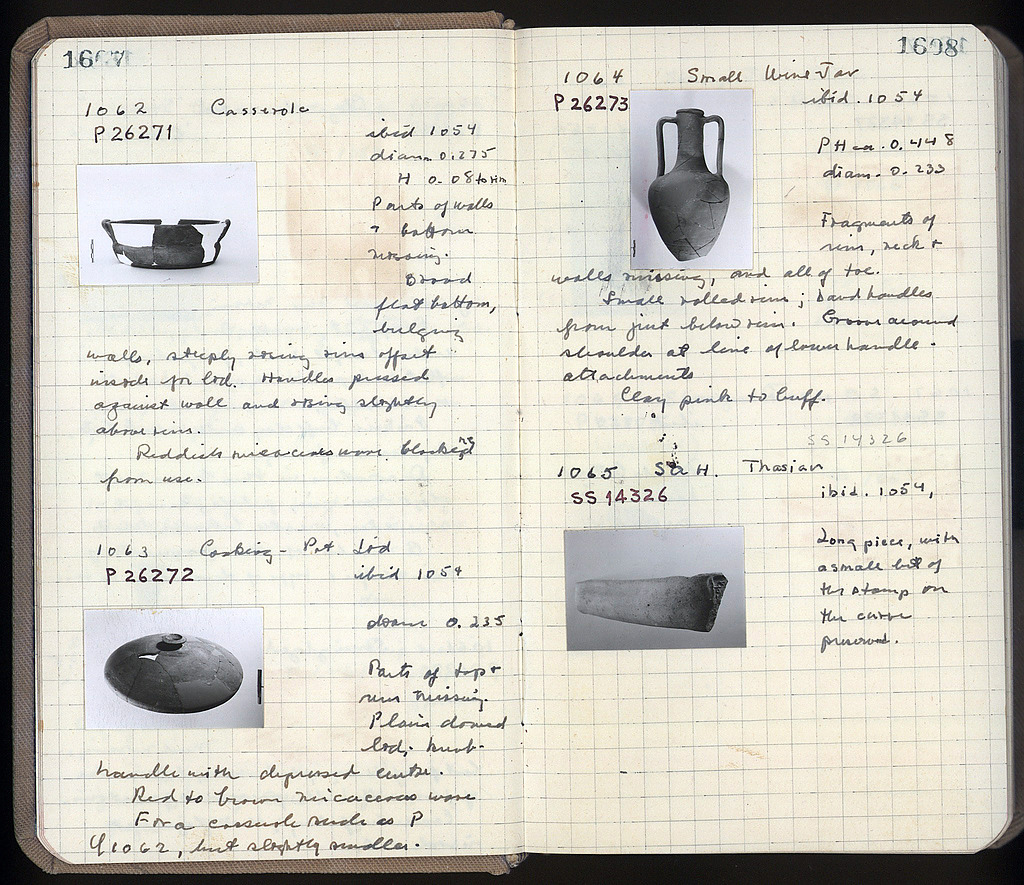 1607
1062 Casserole
P 26271
ibid 1054
diam. 0.275
H 0.08 to rim
Parts of walls
+ bottom
missing.
Broad
flat bottom,
bulging
walls, steeply rising rim offset
inside for lid. Handles pressed
against wall and rising slightly
above rim.
Reddish micaceous ware blackened
from use.
1063 Cooking-Pot Lid
P 26272
ibid 1054
diam 0.235
Parts of top +
rim missing.
Plain domed
lid; knob-
handle with depressed centre.
Red to brown micaceous ware
For a casserole such as P
1062, but slightly smaller.
1608
1064 Small Wine Jar
P 26273
ibid. 1054
PH ca. 0.448
diam. 0.233
Fragments of
rim, neck +
walls missing, and all of toe.
Small rolled rim; band handles
from just below rim. Groove around
shoulder at line of lower handle
attachments
Clay pink to buff.
SS 14326
1065 SAH. Thasian
SS 14326
ibid. 1054,
Long piece, with
a small bit of
the stamp on
the curve
preserved.